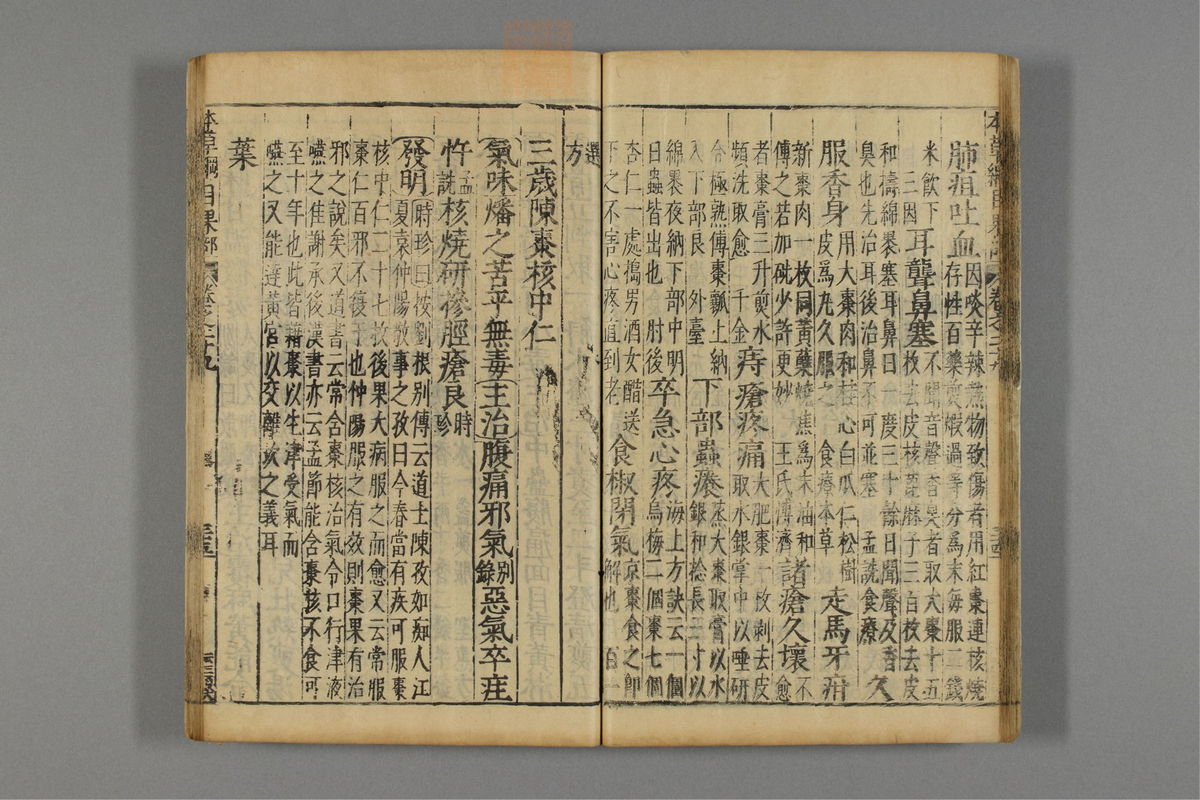 本草綱目果部 卷之二十九
肺疽吐血因啖辛辣熱物致傷者用紅棗連核燒
存性百藥煎煅過等分爲末每服二錢
米飲下
三因耳聾鼻塞不聞音聲香臭者取大棗十五
枚去皮核蓖麻子三百枚去皮
和擣綿裹塞耳鼻日一度三十餘日聞聲及香
臭也先治耳後治鼻不可並塞 孟詵食療 久
服香身用大棗肉和桂心白瓜仁松樹
皮爲丸久服之 食療本草 走馬牙疳
新棗肉一枚同黃蘗燒焦爲末油和
傅之若加砒少許更妙 王氏博濟 諸瘡久壞不愈
者棗膏三升煎水
頻洗取愈 千金 痔瘡疼痛大肥棗一枚剝去皮
取水銀掌中以唾研
令極熟傅棗瓤上納
入下部良 外臺 下部蟲癢蒸大棗取膏以水
銀和捻長三寸以
綿裹夜納下部中明
日蟲皆出也 肘後 卒急心疼海上方訣云一個
烏梅二個棗七個
杏仁一處搗男酒女醋送
下之不害心疼直到老 食椒閉氣京棗食之即
解也 百一
選
方
三歲陳棗核中仁
氣味燔之苦平無毒主治腹痛邪氣別錄惡氣卒疰
忤孟詵核燒研摻脛瘡良時珍
發明時珍曰按劉根別傳云道士陳孜如痴人江
夏袁仲陽敬事之孜曰今春當有疾可服棗
核中仁二十七枚後果大病服之而愈又云常服
棗仁百邪不復干也仲陽服之有效則棗果有治
邪之說矣又道書云常含棗核治氣令口行津液
嚥之佳謝承後漢書亦云孟節能含棗核不食可
至十年也此皆藉棗以生津受氣而
嚥之又能達黃宮以交離坎之義耳
葉
本草綱目果部 卷之二十九